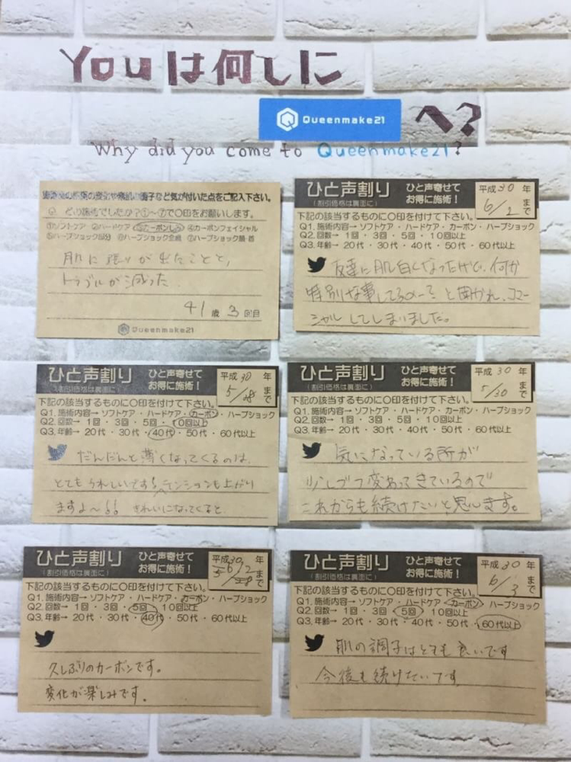 Youは何しに
Queenmake21
へ?
Why did you come to Queenmake21?
気が付いた点をご記入下さい。
①〜⑦で〇印をお願いします。
①ソフトケア ②ハードケア ③カーボンしみ ④カーボンフェイシャル
肌に張りが出たことと、
トラブルが減った
41歳 3回目
Queenmake21
ひと声割り ひと声寄せて 平成30年
お得に施術! 6/2まで
下記の該当するものに〇印を付けて下さい。
Q1. 施術内容→ ソフトケア ・ ハードケア ・ カーボン ・ ハーブショック
Q2. 回数→ 1回 ・ 3回 ・ 5回 ・ 10回以上
Q3. 年齢→ 20代 ・ 30代 ・ 40代 ・ 50代 ・ 60代以上
友達に肌白くなったけど、何か
特別な事してるの〜?と聞かれ、コマー
シャルしてしまいました。
ひと声割り ひと声寄せて 平成30年
(割引価格は裏面に) お得に施術! 5/28まで
下記の該当するものに〇印を付けて下さい。
Q1. 施術内容→ ソフトケア ・ ハードケア ・ カーボン ・ ハーブショック
Q2. 回数→ 1回 ・ 3回 ・ 5回 ・ 10回以上
Q3. 年齢→ 20代 ・ 30代 ・ 40代 ・ 50代 ・ 60代以上
だんだんと薄くなってくるのは、
とてもうれしいです。テンションも上がり
ますよ〜!! きれいになってくると
ひと声割り ひと声寄せて 平成30年
(割引価格は裏面に) お得に施術! 5/30まで
下記の該当するものに〇印を付けて下さい。
Q1. 施術内容→ ソフトケア ・ ハードケア ・ カーボン ・ ハーブショック
Q2. 回数→ 1回 ・ 3回 ・ 5回 ・ 10回以上
Q3. 年齢→ 20代 ・ 30代 ・ 40代 ・ 50代 ・ 60代以上
気になっている所が
少しづつ変わってきているので
これからも続けたいと思います。
ひと声割り ひと声寄せて 平成30年
(割引価格は裏面に) お得に施術! 6/2まで
下記の該当するものに〇印を付けて下さい。
Q1. 施術内容→ ソフトケア ・ ハードケア ・ カーボン ・ ハーブショック
Q2. 回数→ 1回 ・ 3回 ・ 5回 ・ 10回以上
Q3. 年齢→ 20代 ・ 30代 ・ 40代 ・ 50代 ・ 60代以上
久しぶりのカーボンです。
変化が楽しみです。
ひと声割り ひと声寄せて 平成30年
(割引価格は裏面に) お得に施術! 6/3まで
下記の該当するものに〇印を付けて下さい。
Q1. 施術内容→ ソフトケア ・ ハードケア ・ カーボン ・ ハーブショック
Q2. 回数→ 1回 ・ 3回 ・ 5回 ・ 10回以上
Q3. 年齢→ 20代 ・ 30代 ・ 40代 ・ 50代 ・ 60代以上
肌の調子はとても良いです
今後も続けたいです